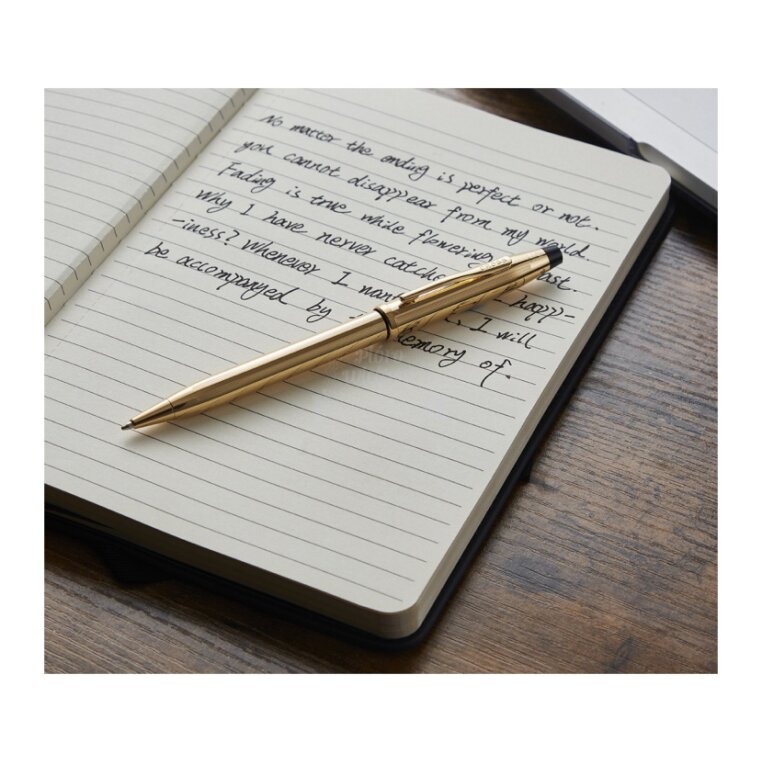 No matter the ending is perfect or not.
you cannot disappear from my world.
Fading is true while flowering ast.
Why I have nerver catche happ-
-iness? Whenever I want I will
be accompanyed by emory of.